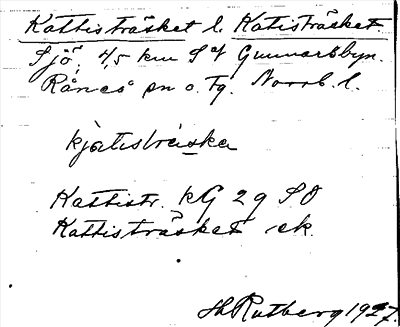 Kattisträsket l. Katisträsket.
Sjö, 4,5 km S of Gunnarsbyn.
Råneå sn o. tg. Norrb. l.
kjatisträska
Kattistr. kG 29 SO
Kattisträsket ek.
H Rutberg 1927.